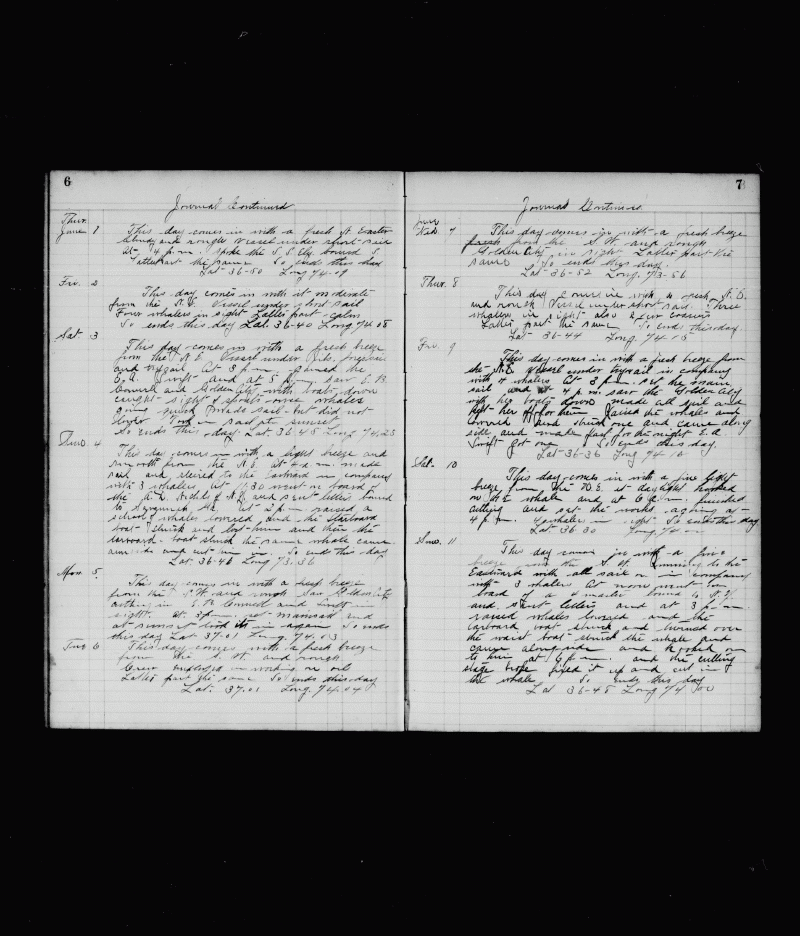 6
Journal Continued
Thur.
June 1 This day comes in with a fresh Easter
Cloudy and rough Vessel under short sail
At 4 p.m. spoke the S.S. Ely bound
Latter part the same So ends this day
Lat 36-50 Long 74-09
Fri. 2
This day comes in with it moderate
from the N.E. Vessel under short sail
Four whalers in sight Latter part calm
So ends this day Lat 36-40 Long 74 18
Sat. 3
This day comes in with a fresh breeze
from the N.E. Vessel under Jib, foresail
and topsail At 3 p.m. gained the
E.A. Swift and at 5 p.m. saw E.B.
Conwell and Golden City with boats down
caught sight of spouts once whales
going quick Made sail but did not
Took in sail at sunset
So ends this day Lat 36-48 Long 74,23
Sun. 4
This day comes in with a light breeze and
smooth from the N.E. at 4 a.m. made
sail and steered to the Eastward in company
with 3 whalers at 7.30 went on board of
the of N.Y. and sent letters bound
to Ga. at 2 p.m. raised a
school of whales lowered and the starboard
boat struck and lost him and then the
larboard boat struck the same whale came
alongside and cut him in. So ends this day
Lat 36-46 Long 73.36
Mon. 5.
This day comes in with a fresh breeze
from the S.W. and rough Saw Golden City
cutting in E.B. Conwell and Swift in
sight. at 3 p.m. set mainsail and
at sunset took it in again So ends
this day Lat 37.01 Long. 74.03
Tues 6 This day comes with a fresh breeze
from the S.W. and rough
Crew employed in working on oil
Latter part the same So ends this day
Lat. 37.01 Long. 74.04
7
Journal Continued
June
Wed. 7 This day comes in with a fresh breeze
fresh from the S.W. and rough
Golden City in sight Latter part the
same So ends this day
Lat 36-52 Long. 73-56
Thur. 8
This day comes in with a fresh N.E.
and rough Vessel under short sail Three
whalers in sight also a few coasters
Latter part the same So ends this day
Lat 36-44 Long. 74-15
Fri. 9
This day comes in with a fresh breeze from
the N.E. Vessel under topsail in company
with 4 whalers At 3 p.m. set the main
sail and at 4 p.m. saw the Golden City
with her boats down made all sail and
kept her off for him Raised the whales and
lowered and struck one and came along
side and made fast for the night E.A.
Swift got one So ends this day
Lat 36-36 Long 74 10
Sat. 10
This day comes in with a fine light
breeze from the N.E. at daylight hooked
on the whale and at 6 a.m. finished
cutting and set the works agoing at
4 p.m. 4 whalers in sight. So ends this day
Lat 36 30 Long. 74
Sun. 11
This day comes in with a fine
breeze from the S.W. running to the
Eastward with all sail on in company
with 3 whalers At noon went on
board of a 4 master bound to N.Y.
and sent letters and at 3 p.m.
raised whales lowered and the
larboard boat struck and turned over
the waist boat struck the whale and
came alongside and hooked on
to him at 6 p.m. and the cutting
stage broke fixed it up and cut in
the whale, So ends this day
Lat 36-48 Long 74 00